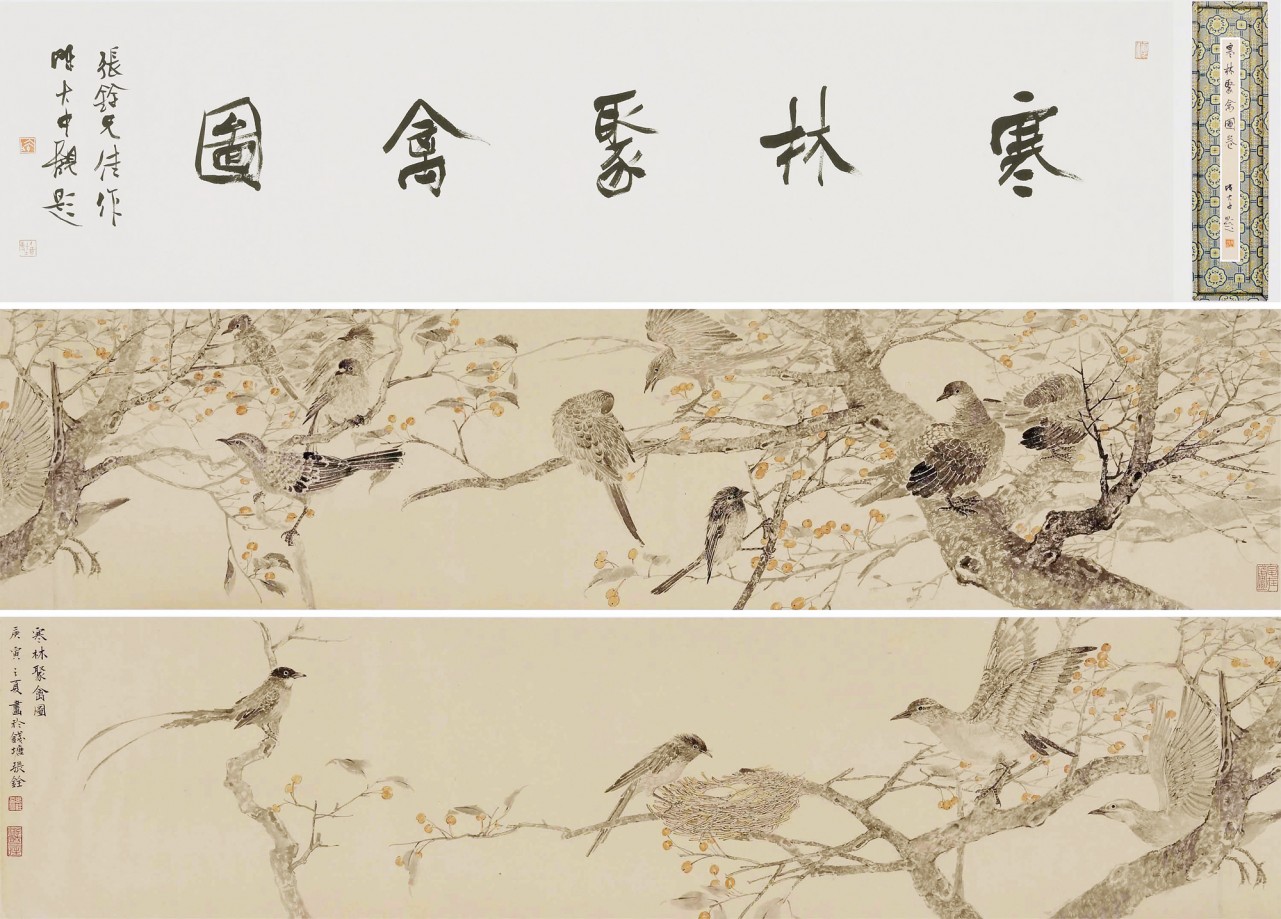 寒林聚禽圖卷
寒林聚禽圖
張銓兄佳作
大中觀題
寒林聚禽圖
庚寅之夏畫於錢塘張銓